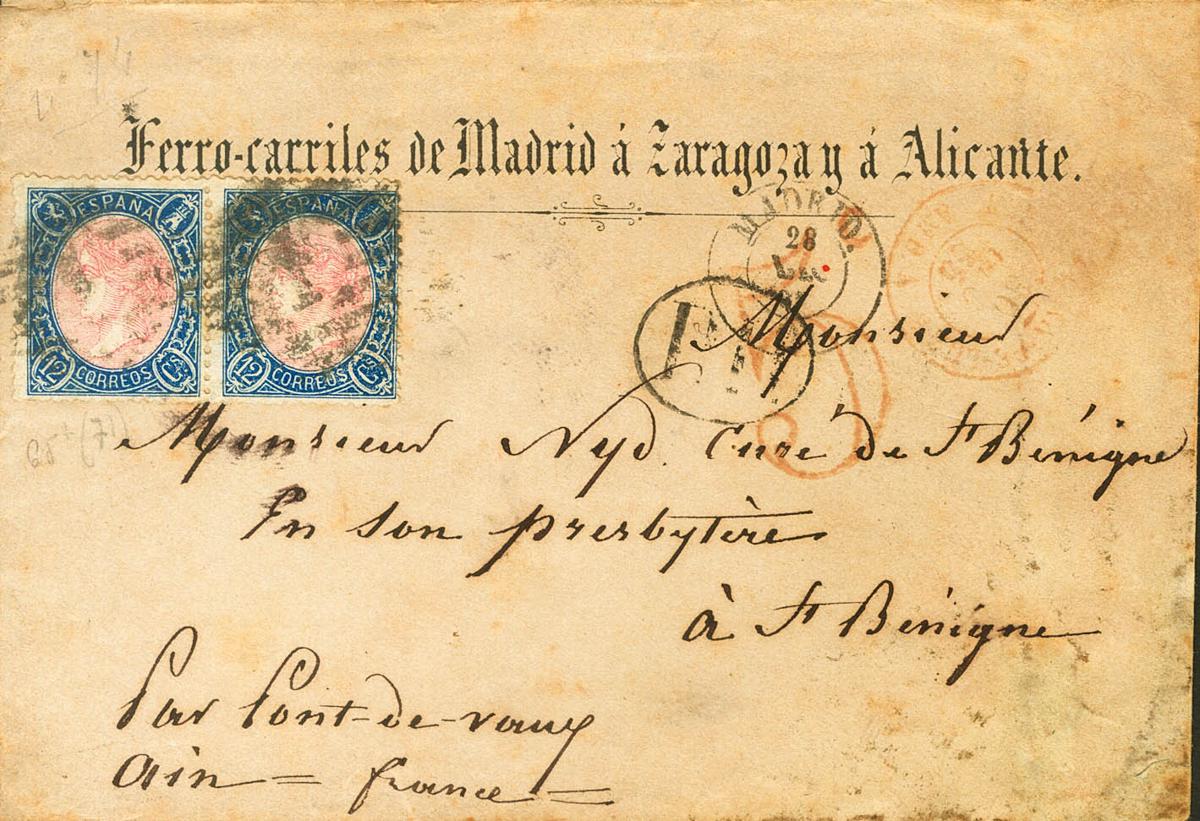 Ferro-carriles de Madrid á Zaragoza y á Alicante.
ESPAÑA
12 CORREOS Cs
ESPAÑA
12 CORREOS Cs
MADRID.
28
Monsieur
Monsieur Nyd. Curé de St Bénigne
En son presbytère
à St Bénigne
Par Pont-de-vaux
Ain = france =